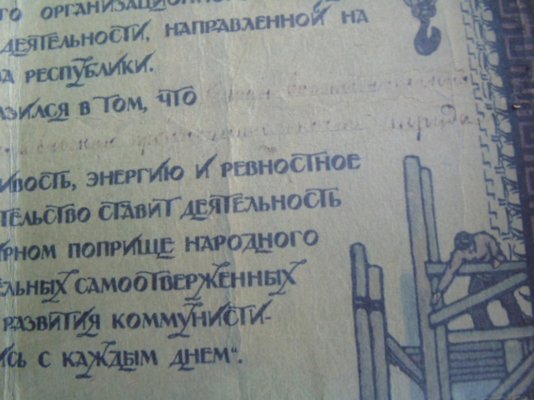 го организационно
деятельности, направленной на
ва республики.
азился в том, что
ивость, энергию и ревностное
тельство ставит деятельность
ирном поприще народного
ельных самоотверженных
развития коммунисти-
ись с каждым днем".